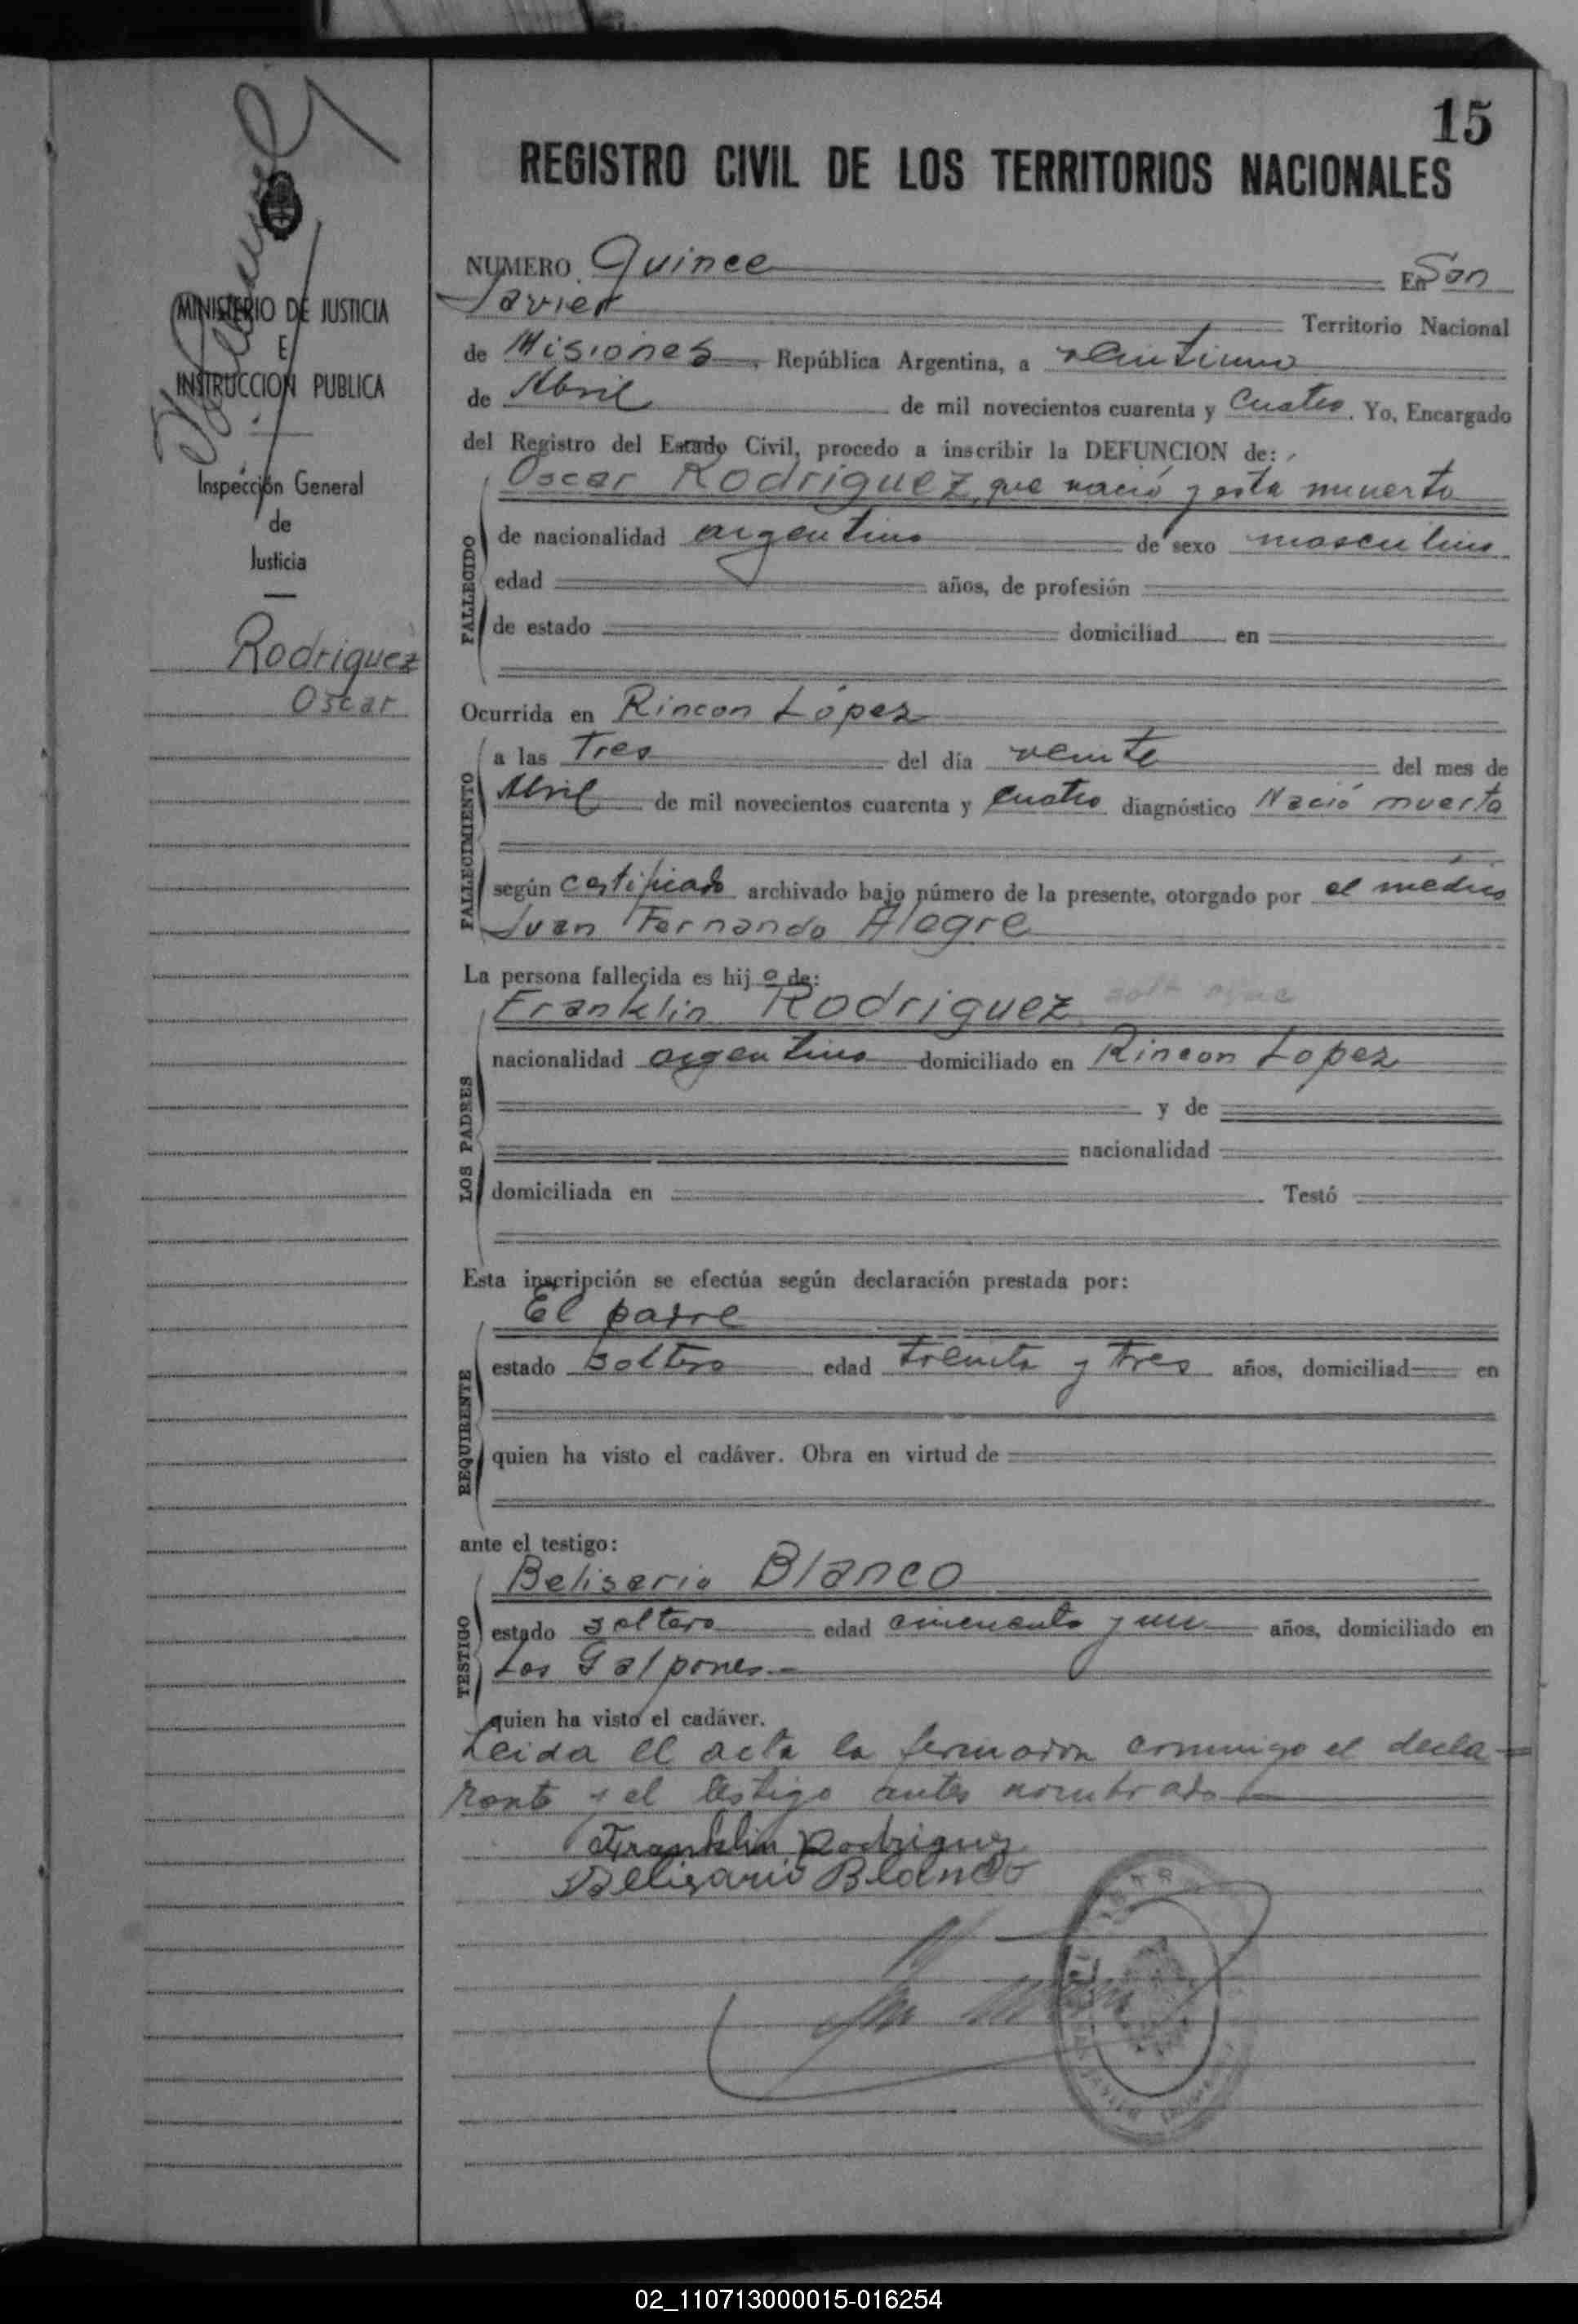 15
REGISTRO CIVIL DE LOS TERRITORIOS NACIONALES
MINISTERIO DE JUSTICIA
E
INSTRUCCION PUBLICA
Inspección General
de
Justicia
Rodriguez
Oscar
NUMERO Quince En San
Javier Territorio Nacional
de Misiones, República Argentina, a veintiuno
de Abril de mil novecientos cuarenta y cuatro. Yo, Encargado
del Registro del Estado Civil, procedo a inscribir la DEFUNCION de:
FALLECIDO
Oscar Rodriguez, que nació y esta muerto
de nacionalidad argentino de sexo masculino
edad años, de profesión
de estado domiciliad en
Ocurrida en Rincon López
FALLECIMIENTO
a las Tres del día veinte del mes de
Abril de mil novecientos cuarenta y cuatro diagnóstico Nació muerto
según certificado archivado bajo número de la presente, otorgado por el médico
Juan Fernando Alegre
La persona fallecida es hijo de:
LOS PADRES
Franklin Rodriguez
nacionalidad argentino domiciliado en Rincon Lopez
y de
nacionalidad
domiciliada en Testó
Esta inscripción se efectúa según declaración prestada por:
REQUIRENTE
El padre
estado soltero edad treinta y tres años, domiciliad en
quien ha visto el cadáver. Obra en virtud de
ante el testigo:
TESTIGO
Belisario Blanco
estado soltero edad cincuenta y un años, domiciliado en
Los Galpones.-
quien ha visto el cadáver.
Leida el acta la firmaron conmigo el decla-
rante y el testigo antes nombrado
Franklin Rodriguez
Belisario Blanco
02_110713000015-016254